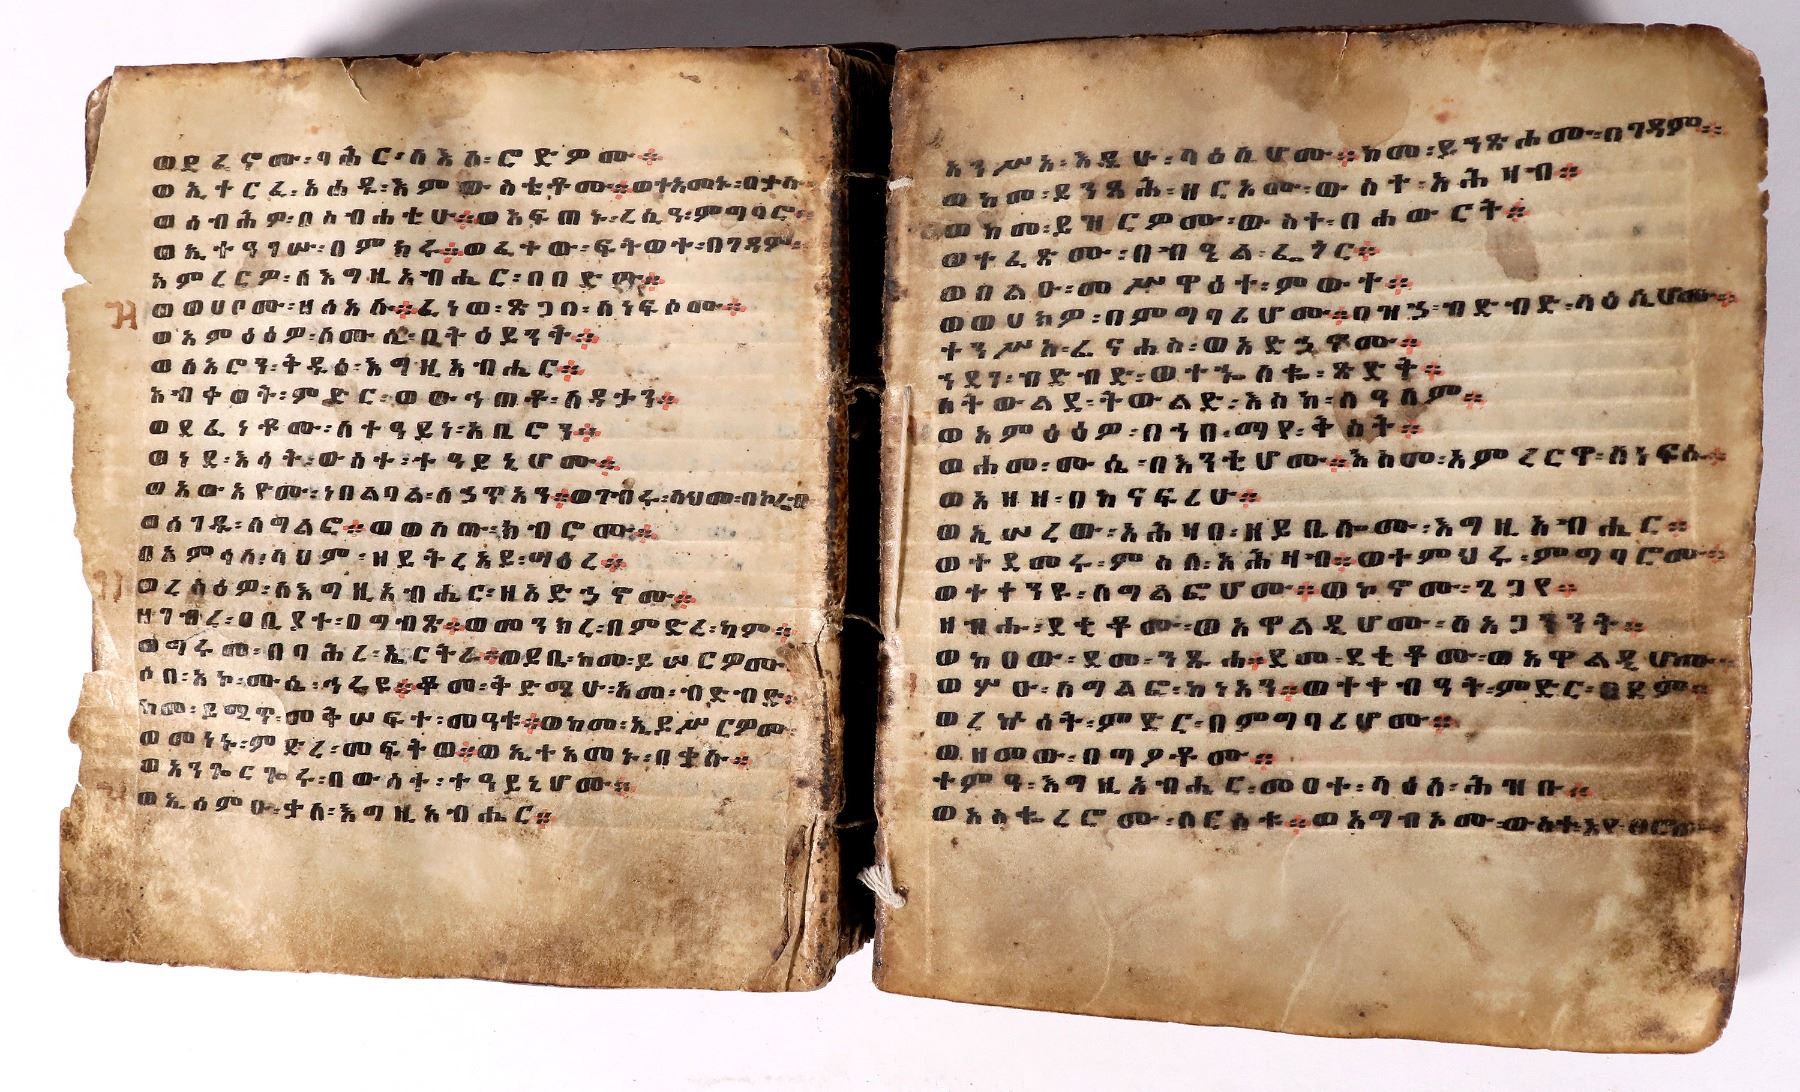 ወደፈኖሙ፡ባሕር፡ለእለ፡ሮድዎሙ።
ወኢተርፈ፡አሐዱ፡እምውስቴቶሙ።ወተአመኑ፡በቃሉ።
ወሰብሕዎ፡በስብሐቲሁ።ወአፍጠኑ፡ረሲዓ፡ምግባሮ።
ወኢተዓገሡ፡በምክሩ።ወፈተው፡ፍትወተ፡በገዳም።
አምረርዎ፡ለእግዚአብሔር፡በበድው።
ወወሀቦሙ፡ዘሰአሉ።ፈነወ፡ጽጋበ፡ለነፍሶሙ።
ወአምዕዕዎ፡ለሙሴ፡በትዕይንት።
ወለአሮን፡ቅዱሰ፡እግዚአብሔር።
አብቀወት፡ምድር፡ወውኅጠቶ፡ለዳታን።
ወደፈነቶሙ፡ለተዓይነ፡አቤሮን።
ወነደ፡እሳት፡ውስተ፡ተዓይኒሆሙ።
ወአውአዮሙ፡ነበልባል፡ለኃጥአን።ወገብሩ፡ላህመ፡በኮሬብ
ወሰገዱ፡ለግልፎ።ወወለጡ፡ክብሮሙ።
በአምሳለ፡ላህም፡ዘይትረአይ፡ሣዕረ።
ወረስዕዎ፡ለእግዚአብሔር፡ዘአድኃኖሙ።
ዘገብረ፡ዐቢያተ፡በግብጽ።ወመንክረ፡በምድረ፡ካም።
ወግሩመ፡በባሕረ፡ኤርትራ።ወይቤ፡ከመ፡ይሠርዎሙ
ሶበ፡አኮ፡ሙሴ፡ኅሩይ።ቆመ፡ቅድሜሁ፡አመ፡ብድብድ።
ከመ፡ይሚጥ፡መቅሠፍተ፡መዓቱ።ወከመ፡ኢይሥርዎሙ
ወመነኑ፡ምድረ፡መፍትወ።ወኢተአመኑ፡በቃሉ።
ወአንጐርጐሩ፡በውስተ፡ተዓይኒሆሙ።
ወኢሰምዑ፡ቃለ፡እግዚአብሔር።
አንሥአ፡እዴሁ፡ላዕሌሆሙ።ከመ፡ይንጽሖሙ፡በገዳም።
ወከመ፡ይንጻሕ፡ዘርአሙ፡ውስተ፡አሕዛብ።
ወከመ፡ይዝርዎሙ፡ውስተ፡በሐውርት።
ወተፈጸሙ፡በብዔል፡ፌጎር።
ወበልዑ፡መሥዋዕተ፡ምውት።
ወወሀክዎ፡በምግባሪሆሙ።በዝኃ፡ብድብድ፡ላዕሌሆሙ።
ተንሥአ፡ፊናሐስ፡ወአድኃኖሙ።
ኀደገ፡ብድብድ፡ወተኈለቈ፡ጽድቅ።
ለትውልደ፡ትውልድ፡እስከ፡ለዓለም።
ወአምዕዕዎ፡በኀበ፡ማየ፡ቅስት።
ወሐመ፡ሙሴ፡በእንቲሆሙ።እስመ፡አምረርዋ፡ለነፍሱ።
ወአዘዘ፡በከናፍሪሁ።
ወኢሠረው፡አሕዛበ፡ዘይቤሎሙ፡እግዚአብሔር።
ወተደመሩ፡ምስለ፡አሕዛብ።ወተምህሩ፡ምግባሮሙ።
ወተቀንዩ፡ለግልፎሆሙ።ወኮኖሙ፡ጌጋየ።
ዘብሑ፡ደቂቆሙ፡ወአዋልዲሆሙ፡ለአጋንንት።
ወከዐው፡ደመ፡ንጹሐ።ደመ፡ደቂቆሙ፡ወአዋልዲሆሙ።
ወሦዑ፡ለግልፎ፡ከነአን።ወተቀብዓት፡ምድር፡በደም።
ወረኵሰት፡ምድር፡በምግባሪሆሙ።
ወዘመው፡በጣዖቶሙ።
ተምዓ፡እግዚአብሔር፡መዐተ፡ላዕለ፡ሕዝቡ።
ወአስቈረሮሙ፡ለርስቱ።ወአግብኦሙ፡ውስተ፡እደ፡ፀሮሙ